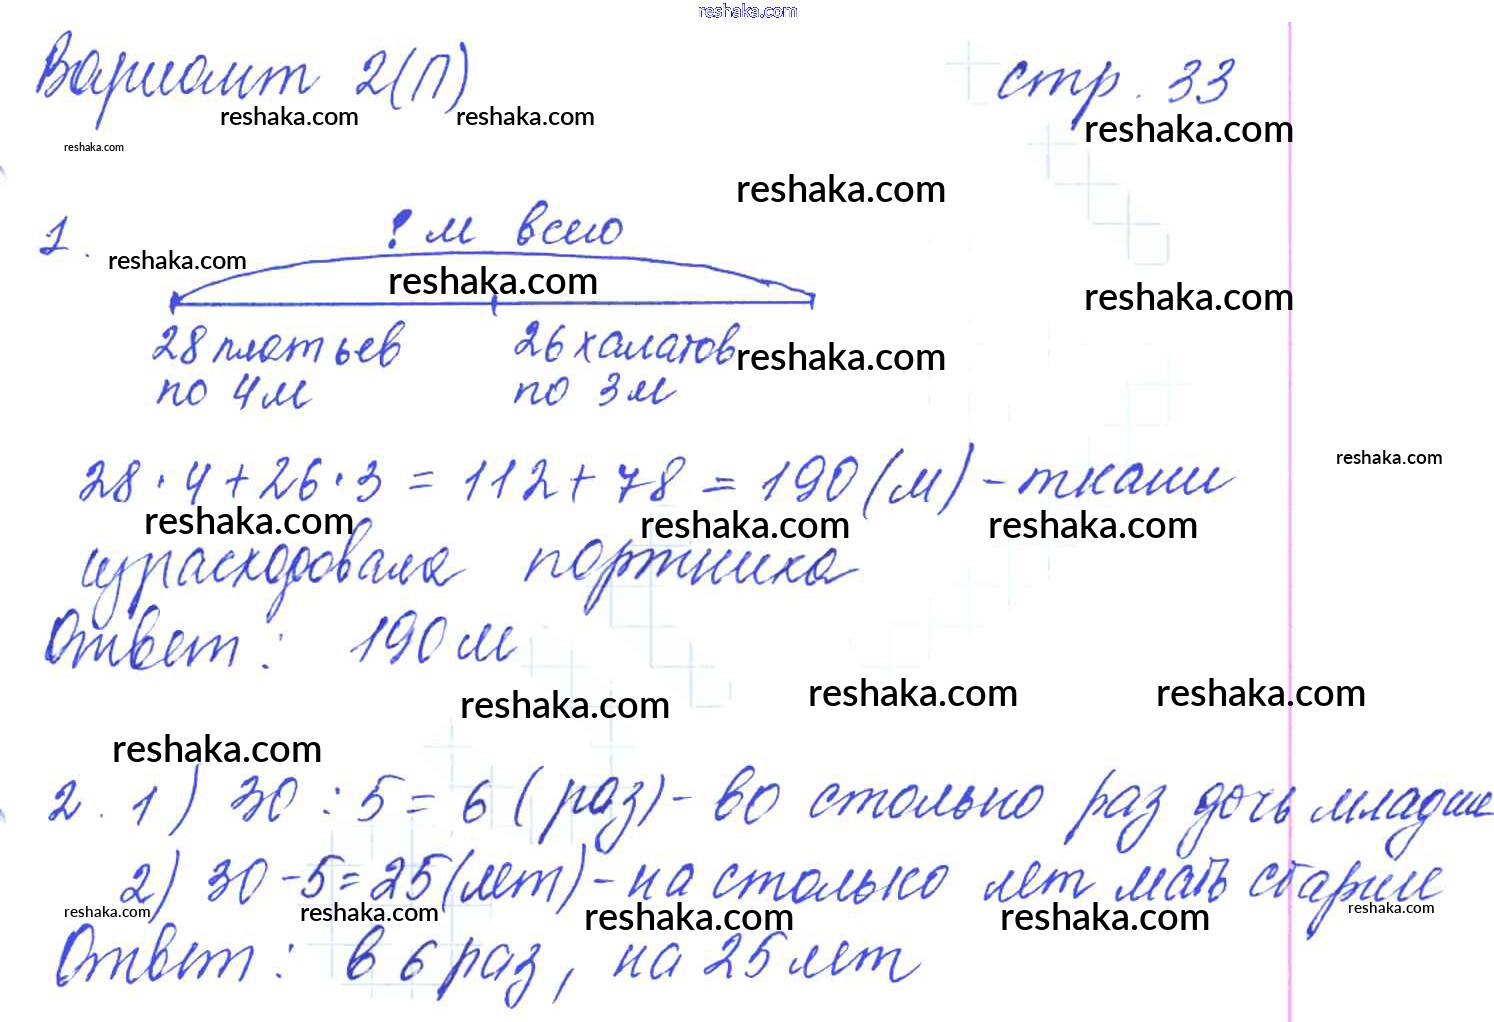 reshaka.com
Вариант 2(П) стр. 33
reshaka.com reshaka.com reshaka.com
reshaka.com
reshaka.com
1. ? м всего
reshaka.com reshaka.com reshaka.com
28 платьев 26 халатов reshaka.com
по 4 м по 3 м
reshaka.com
28 · 4 + 26 · 3 = 112 + 78 = 190 (м) - ткани
reshaka.com reshaka.com reshaka.com
израсходовала портниха
Ответ: 190 м
reshaka.com reshaka.com reshaka.com
reshaka.com
2. 1) 30 : 5 = 6 (раз) - во столько раз дочь младше
2) 30 - 5 = 25 (лет) - на столько лет мать старше
reshaka.com reshaka.com reshaka.com reshaka.com reshaka.com
Ответ: в 6 раз, на 25 лет